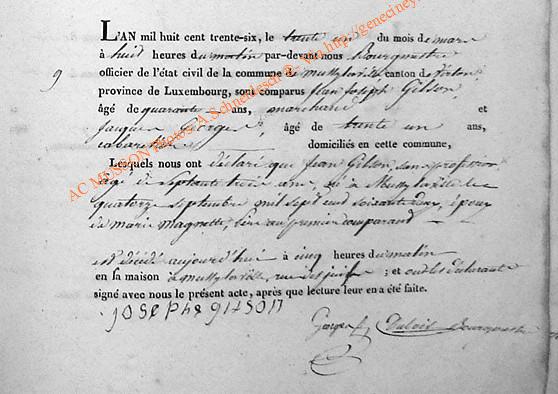 L'AN mil huit cent trente-six, le trente un du mois de mars
à huit heures du matin par-devant nous Bourguestre
officier de l'état civil de la commune de Mussy la ville canton de Virton
province de Luxembourg, sont comparus Jean Joseph Gilson,
9
âgé de quarante ans, marchand et
Jacques Georges, âgé de trente un ans,
cabaretier domiciliés en cette commune,
Lesquels nous ont déclaré que Jean Gilson sans profession
âgé de septante trois ans, né à Mussy la ville le
quatorze septembre mil sept cent soixante deux, époux
de marie magnette, père au premier comparant
est décédé aujourd'hui à cinq heures du matin
en sa maison à mussy la ville, rue des juifs ; et ont les déclarants
signé avec nous le présent acte, après que lecture leur en a été faite.
JOSePhe giLSON
Georges Bourguestre
AC MUSSON Photos A.Schneidesch © Via http://geneciney